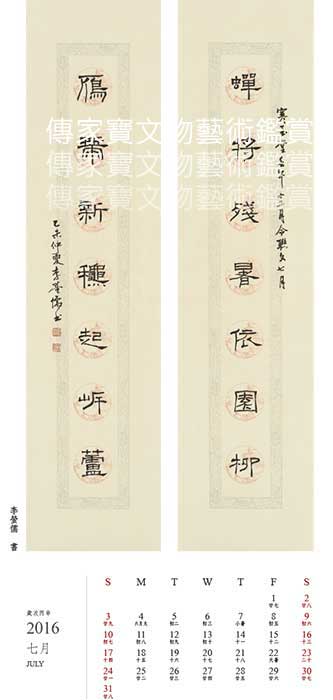 蟬將殘暑依園柳
鴈帶新穐起岍蘆
乙未仲夏李螢儒書
傳家寶文物藝術鑑賞
傳家寶文物藝術鑑賞
傳家寶文物藝術鑑賞
李螢儒 書
歲次丙申
2016
七月
JULY
S M T W T F S
1 2
廿七 廿八
3 4 5 6 7 8 9
廿九 六月大 初二 初三 小暑 初五 初六
10 11 12 13 14 15 16
初七 初八 初九 初十 十一 十二 十三
17 18 19 20 21 22 23
十四 十五 十六 十七 十八 大暑 二十
24 25 26 27 28 29 30
廿一 廿二 廿三 廿四 廿五 廿六 廿七
31
廿八